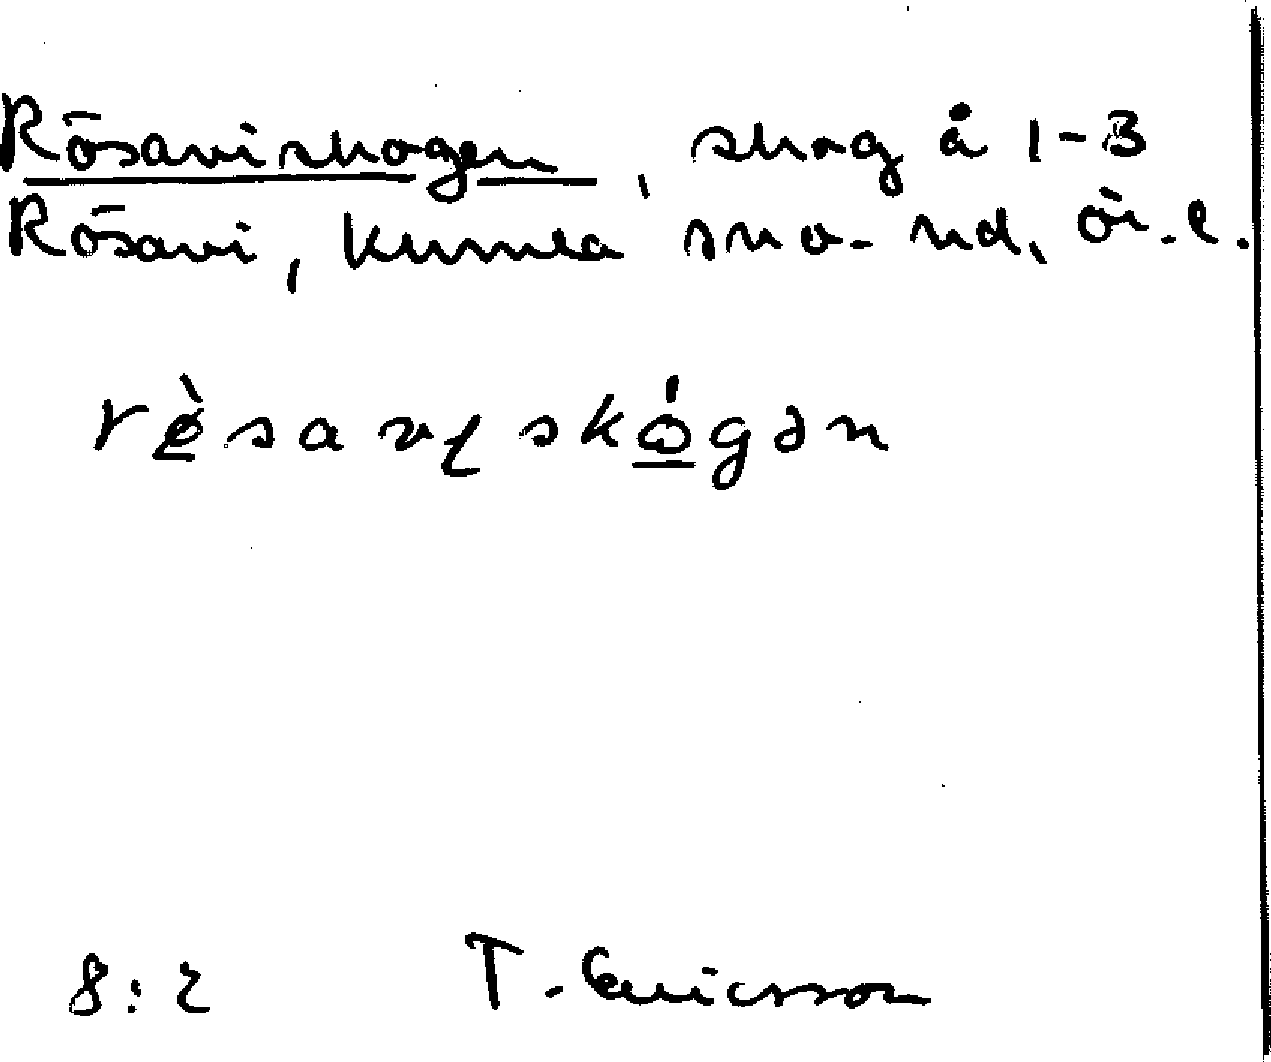 Rösaviskogen, skog å 1-3
Rösavi, Kumla sn o. hd, Ör. l.
rø̀saviskógən
8:2 T. Ericsson